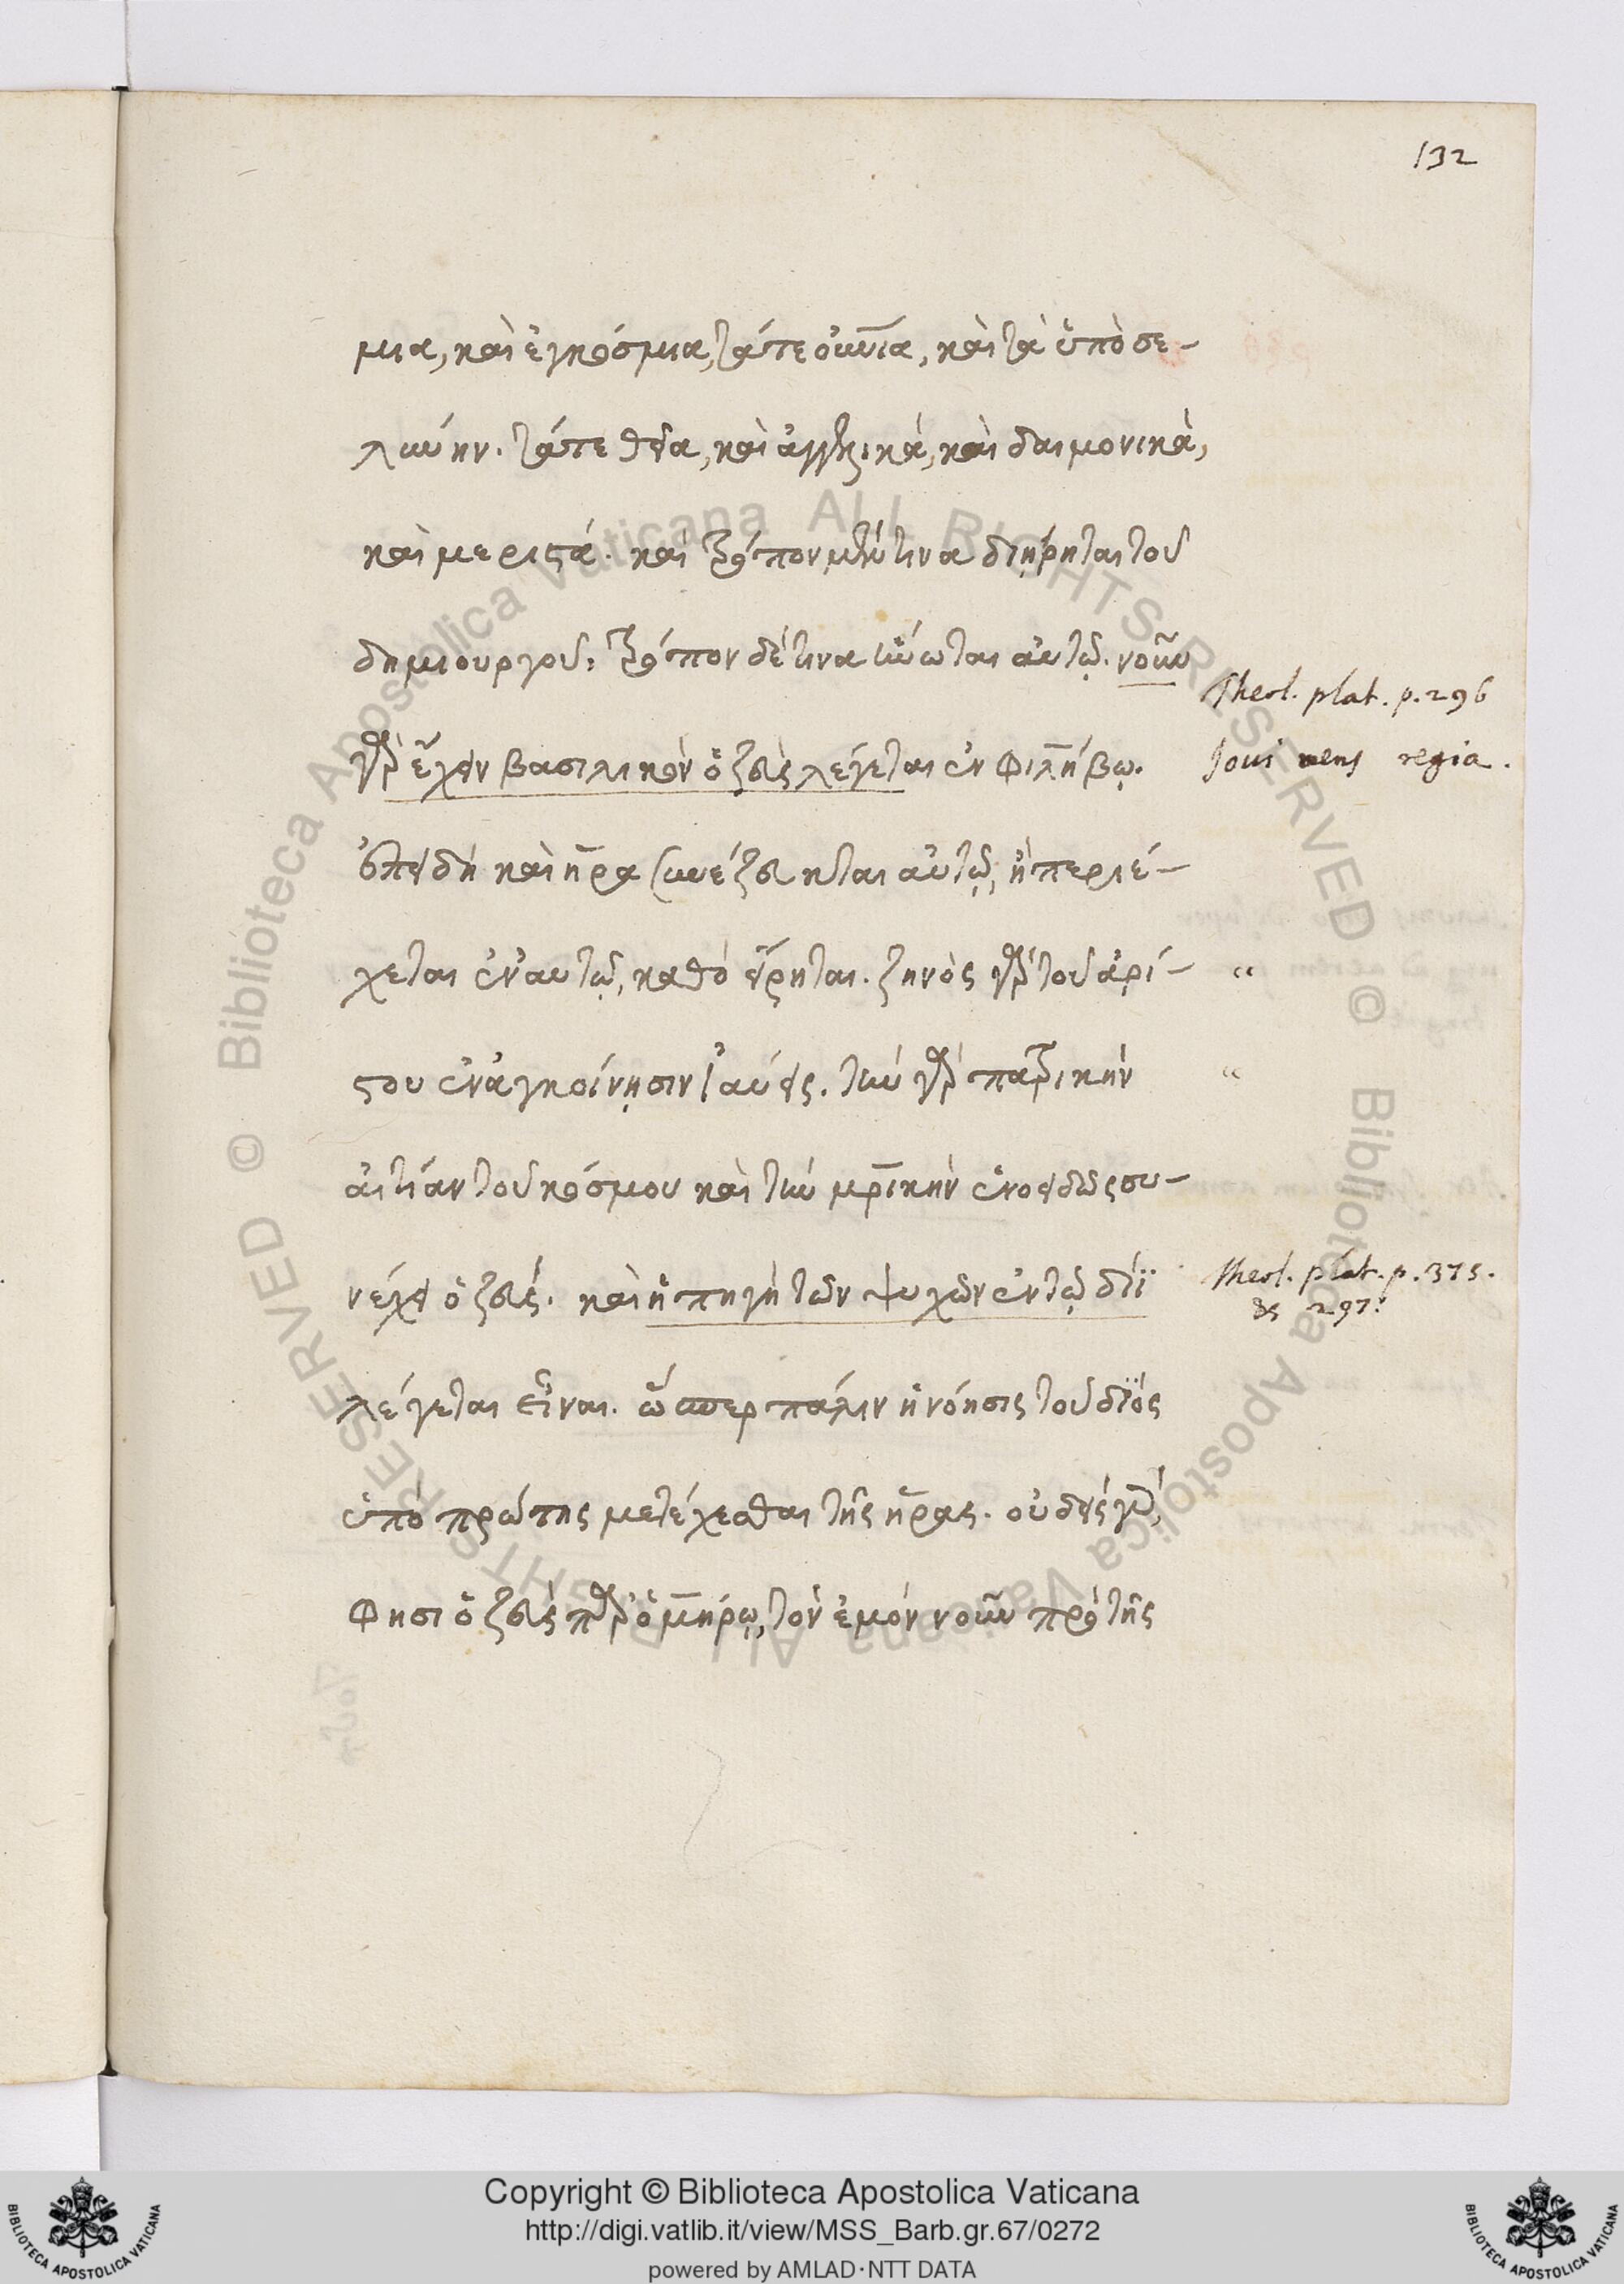 132
μια, καὶ ἐγκόσμια, τάτε οὐνια, καὶ τὰ ὑπὸ σε-
λήνην. τάτε θεῖα, καὶ ἀγγελικά, καὶ δαιμονικὰ,
καὶ μεριστά. καὶ τρόπον μέν τινα διῄρηται τοῦ
δημιουργοῦ: τρόπον δέ τινα ἥνωται αὐτῷ. νοῦν
γὰρ ἔχειν βασιλικὸν ὁ ζεὺς λέγεται ἐν Φιλήβῳ.
ἐπειδὴ καὶ ἥρα συνέζευκται αὐτῷ, ἢ περιέ-
χεται ἐν αυτῷ, καθὸ εἴρηται. ζηνὸς γὰρ τοῦ ἀρί-
στου ἐν ἀγκοίνῃσιν ἰαύεις. τὴν γὰρ πατρικὴν
αἰτίαν τοῦ κόσμου καὶ τὴν μητρικὴν ἑνοειδῶς συ-
νέχει ὁ ζεύς. καὶ ἡ πηγὴ τῶν ψυχῶν ἐν τῷ διῒ
λέγεται εἶναι. ὥσπερ πάλιν ἡ νόησις τοῦ διὸς
ὑπὸ πρώτης μετέχεσθαι τῆς ἥρας. οὐδεὶς γὰρ,
Φησι ὁ ζεὺς παρ' ὁμήρῳ, τὸν ἐμὸν νοῦν πρὸ τῆς
Theol. plat. p. 296
Joui mens regia.
“
“
Theol. plat. p. 315.
& 297.
Copyright © Biblioteca Apostolica Vaticana
http://digi.vatlib.it/view/MSS_Barb.gr.67/0272
powered by AMLAD·NTT DATA
BIBLIOTECA APOSTOLICA VATICANA
BIBLIOTECA APOSTOLICA VATICANA
© Biblioteca Apostolica Vaticana ALL RIGHTS RESERVED © Biblioteca Apostolica Vaticana ALL RIGHTS RESERVED